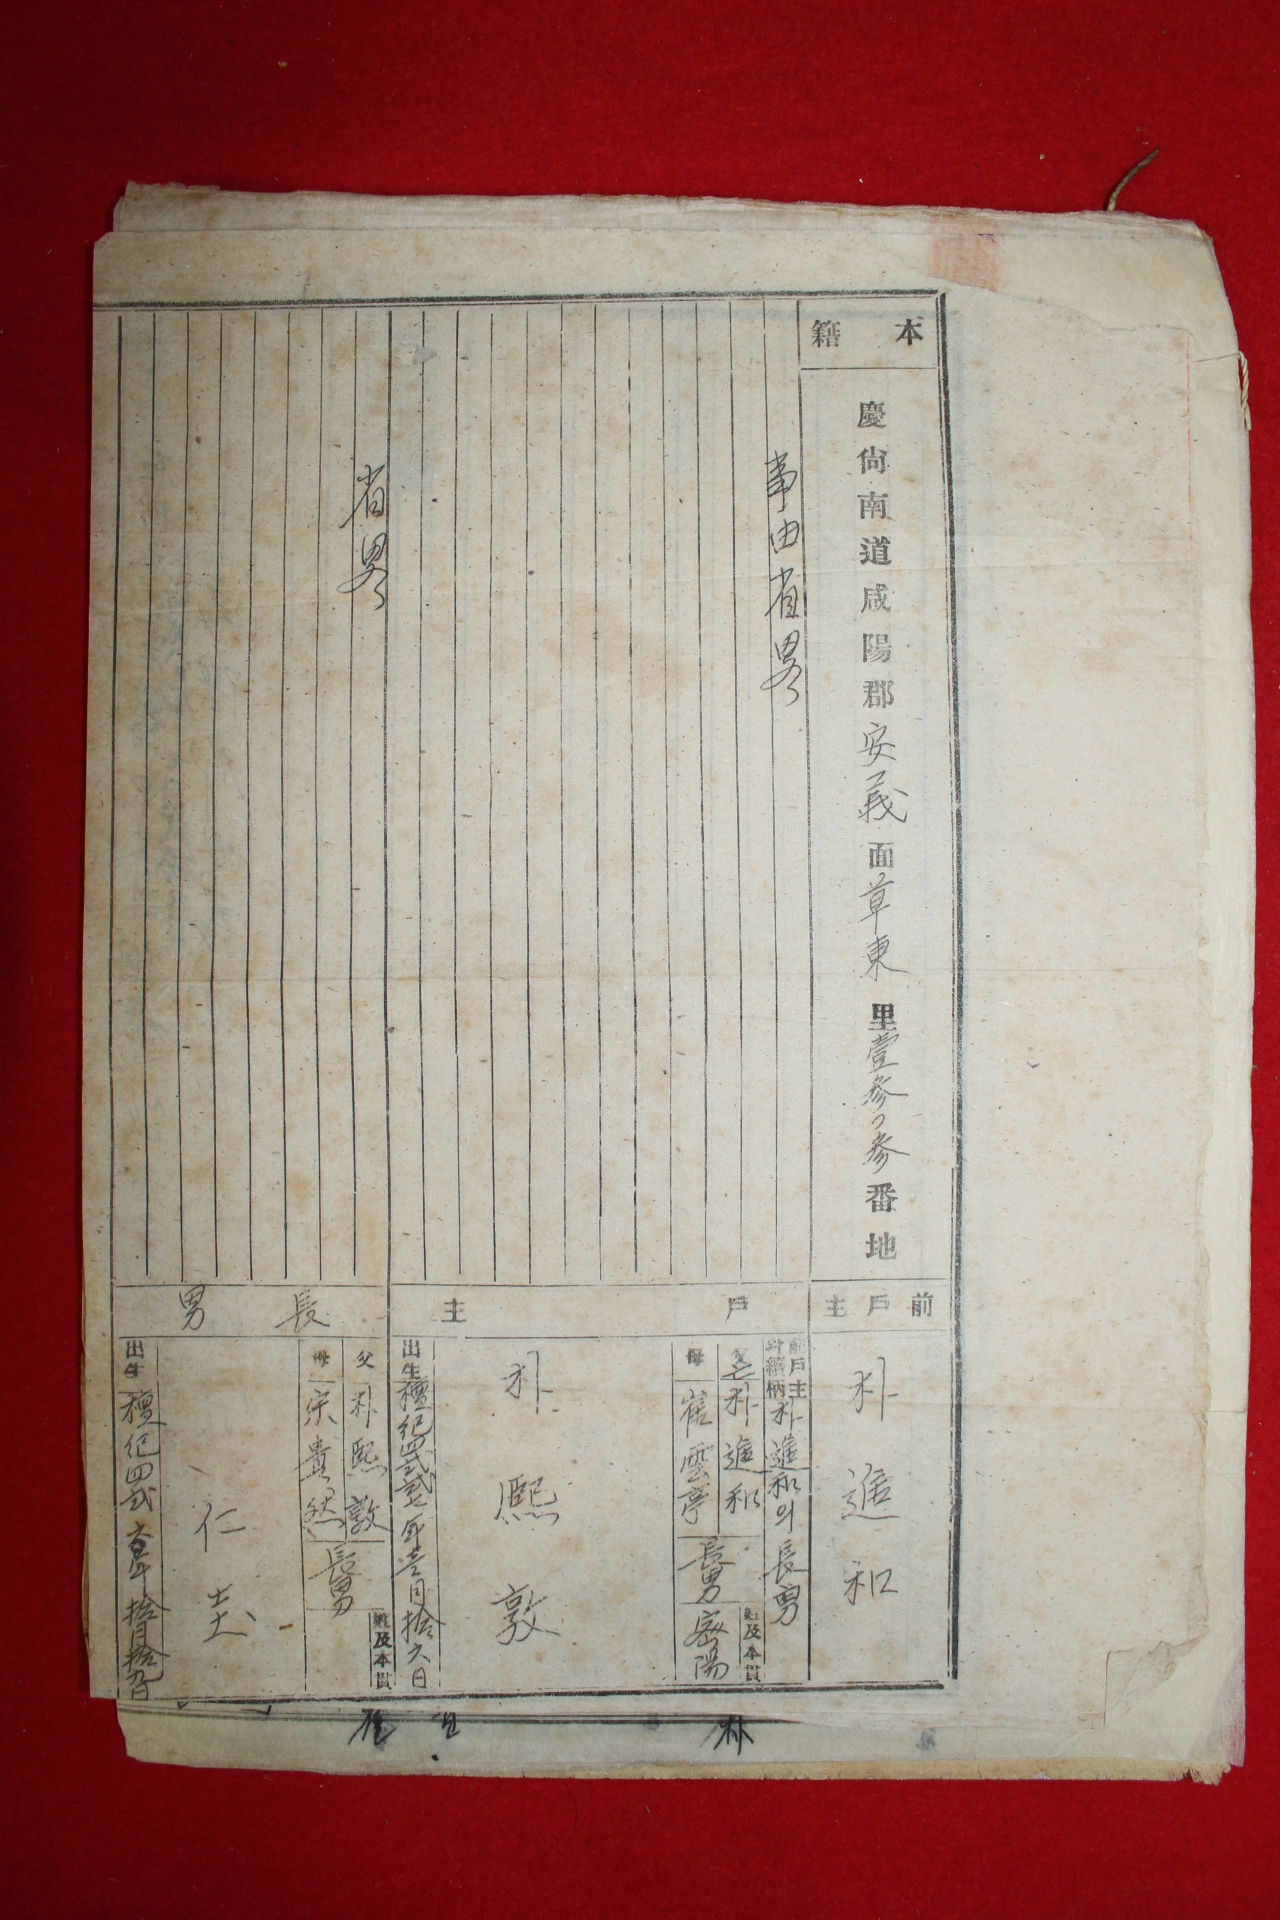 本籍
慶尙南道咸陽郡安義面草東里壹参ノ参番地
前戶主
朴進和
事由省畧
戶主
前戶主와續柄
朴進和의長男
父
亡朴進和
母
崔雲亭
長男
姓及本貫
密陽
朴熙敦
出生
檀紀四弐
年壱月拾六日
省畧
長男
父
朴熙敦
母
宗貴然
長男
姓及本貫
仁圭
出生
檀紀四弐
年拾月拾
日
朴